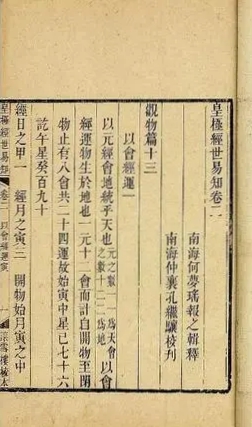 皇極經世易知卷二
南海何夢瑤報之輯釋
南海仲襄孔繼驤校刋
觀物篇十三
以會經運一
以元經會地統乎天也元之數一為天會之數十二為地以會
經運物生於地也一元十二會而計自開物至閉
物止有八會共二十四運故始寅中星已七十六
訖午星癸百九十
經日之甲一 經月之寅三 開物始月寅之中
皇極經世易知 卷二 以會經運 一